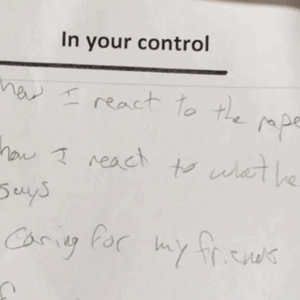 In your control
how I react to the rape
how I react to what he
says
caring for my friends